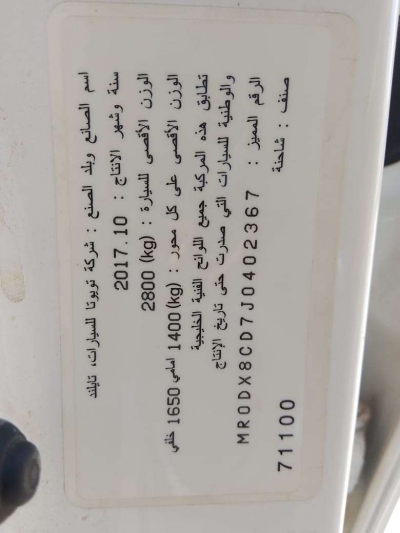 اسم الصانع وبلد الصنع : شركة تويوتا للسيارات، تايلند
سنة وشهر الانتاج : 2017.10
الوزن الأقصى للسيارة : 2800 (kg)
الوزن الأقصى على كل محور : 1400 (kg) امامي 1650 خلفي
تطابق هذه المركبة جميع اللوائح الفنية الخليجية
والوطنية للسيارات التي صدرت حتى تاريخ الإنتاج
الرقم المميز : MR0DX8CD7J0402367
صنف : شاحنة
71100